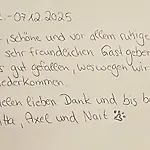 . - 07.12.2025
, schöne und vor allem ruhige
sehr freundlichen Gastgeber
s gut gefallen, weswegen wir
ederkommen.
ielen lieben Dank und bis b
tta, Axel und Nait